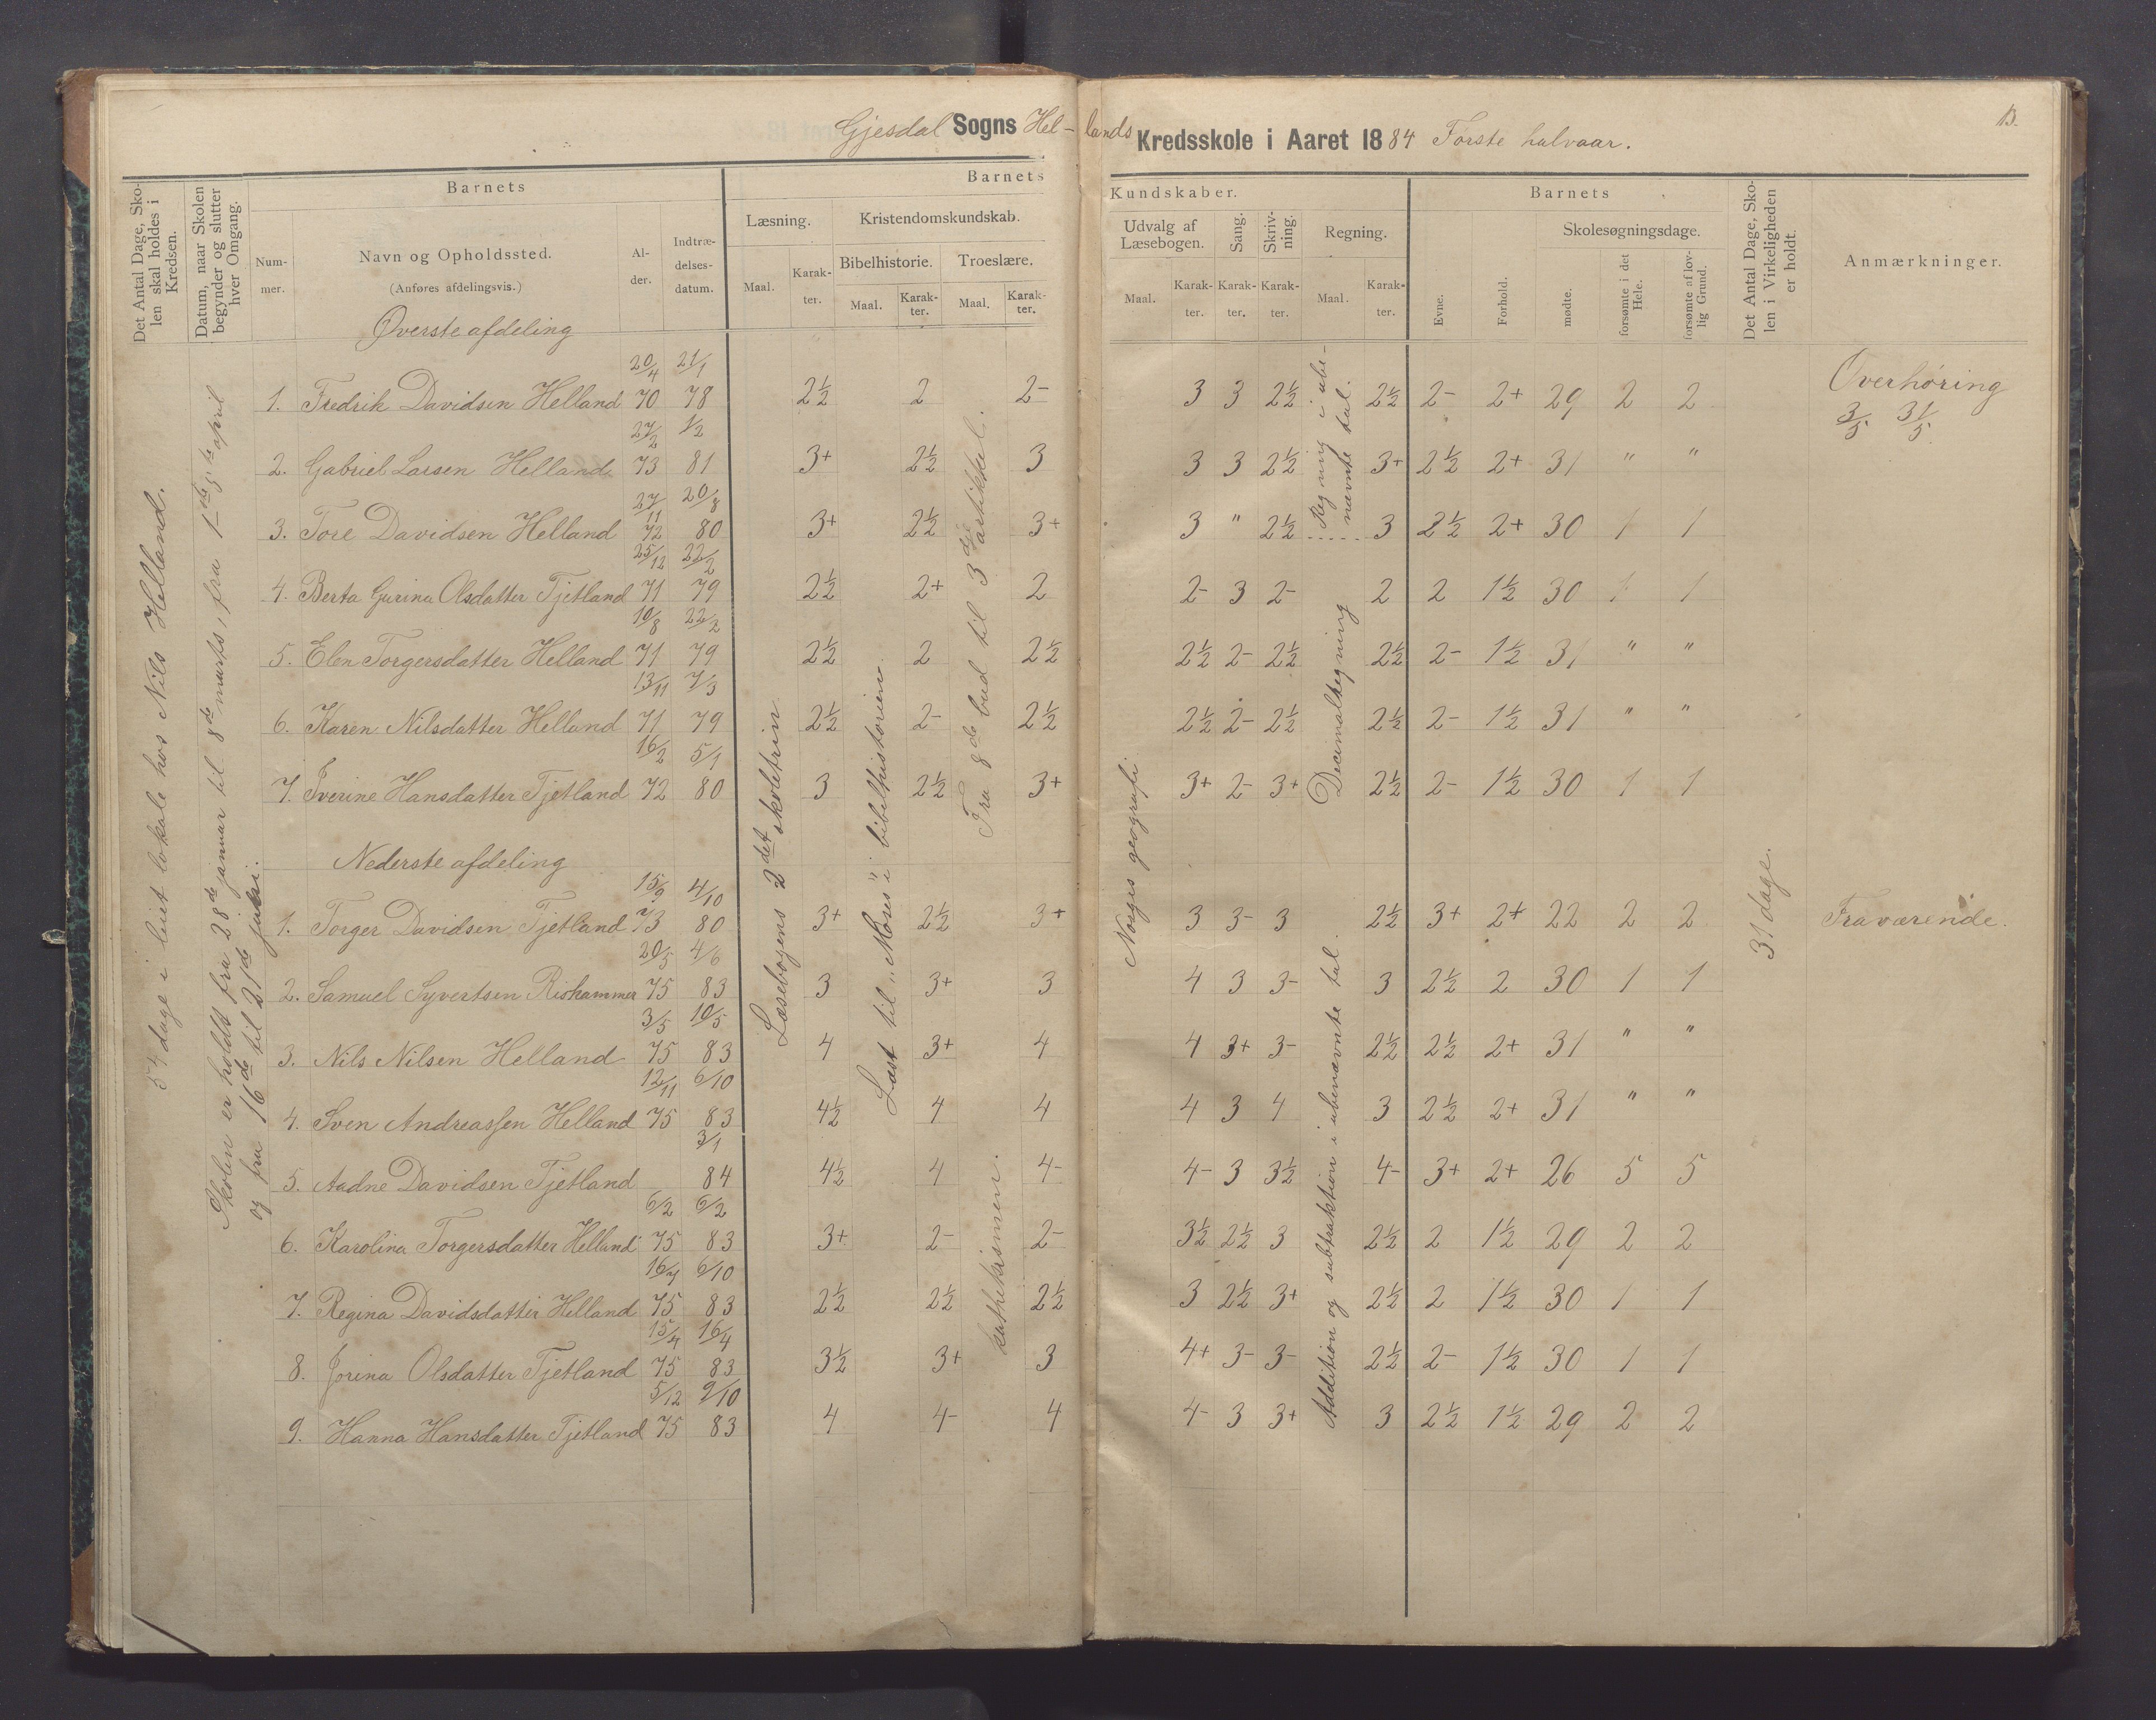 Gjesdal Sogns Hel-lands Kredsskole i Aaret 1884 Første halvaar.
13.
Det Antal Dage, Skolen skal holdes i Kredsen.
Datum, naar Skolen begynder og slutter hver Omgang.
Barnets
Num-mer.
Navn og Opholdssted.
(Anføres afdelingsvis.)
Al-der.
Indtræ-delses-datum.
Barnets Kundskaber.
Læsning.
Maal. Karak-ter.
Kristendomskundskab.
Bibelhistorie. Troeslære.
Maal. Karak-ter. Maal. Karak-ter.
Udvalg af Læsebogen.
Maal. Karak-ter.
Sang. Karak-ter.
Skriv-ning. Karak-ter.
Regning.
Maal. Karak-ter.
Barnets
Evne. Forhold.
Skolesøgningsdage.
mødte. forsømte i det Hele. forsømte af lov-lig Grund.
Det Antal Dage, Sko-len i Virkeligheden er holdt.
Anmærkninger.
54 dage i leiet lokale hos Nils Helland.
Skolen er holdt fra 28de januar til 8de marts, fra 1ste til 5te april
og fra 16de til 21de juli.
Læsebogens 2det skoletrin
Læst til "Moses" i bibelhistorien.
Fra 8de bud til 3die artikkel.
kathekismen.
Norges geografi
Regning i ube-
nævnte tal.
Decimalregning
Addition og subtraktion i ubenævnte tal.
31 dage.
Overhøring
3/5 31/5
Øverste afdeling
1. Fredrik Davidsen Helland 20/4 70 21/1 78 2½ 2 2- 3 3 2½ 2½ 2- 2+ 29 2 2
2. Gabriel Larsen Helland 27/2 73 1/2 81 3+ 2½ 3 3 3 2½ 3+ 2½ 2+ 31 " "
3. Tore Davidsen Helland 27/11 72 20/8 80 3+ 2½ 3+ 3 " 2½ 3 2½ 2+ 30 1 1
4. Berta Gurina Olsdatter Tjetland 25/12 71 22/2 79 2½ 2+ 2 2- 3 2- 2 2 1½ 30 1 1
5. Elen Torgersdatter Helland 10/8 71 22/2 79 2½ 2 2½ 2½ 2- 2½ 2½ 2- 1½ 31 " "
6. Karen Nilsdatter Helland 13/11 71 7/3 79 2½ 2- 2½ 2½ 2- 2½ 2½ 2- 1½ 31 " "
7. Iverine Hansdatter Tjetland 16/2 72 5/1 80 3 2½ 3+ 3+ 2- 3+ 2½ 2- 1½ 30 1 1
Nederste afdeling
1. Torger Davidsen Tjetland 15/9 73 4/10 80 3+ 2½ 3+ 3 3- 3 2½ 3+ 2+ 22 2 2 Fraværende.
2. Samuel Syvertsen Rishammer 20/5 75 4/6 83 3 3+ 3 4 3 3- 3 2½ 2 30 1 1
3. Nils Nilsen Helland 3/5 75 10/5 83 4 3+ 4 4 3+ 3- 2½ 2½ 2+ 31 " "
4. Sven Andreassen Helland 12/11 75 6/10 83 4½ 4 4 4 3 4 3 2½ 2+ 31 " "
5. Aadne Davidsen Tjetland 3/1 84 4½ 4 4- 4- 3 3½ 4- 3+ 2+ 26 5 5
6. Karolina Torgersdatter Helland 6/2 75 6/2 83 3+ 2- 2- 3½ 2½ 3 2½ 2 1½ 29 2 2
7. Regina Davidsdatter Helland 16/7 75 6/10 83 2½ 2½ 2½ 3 2½ 3+ 2½ 2 1½ 30 1 1
8. Jorina Olsdatter Tjetland 15/4 75 16/4 83 3½ 3+ 3 4+ 3- 3- 2½ 2- 1½ 30 1 1
9. Hanna Hansdatter Tjetland 5/12 75 9/10 83 4 4- 4 4- 3 3+ 3 2½ 1½ 29 2 2